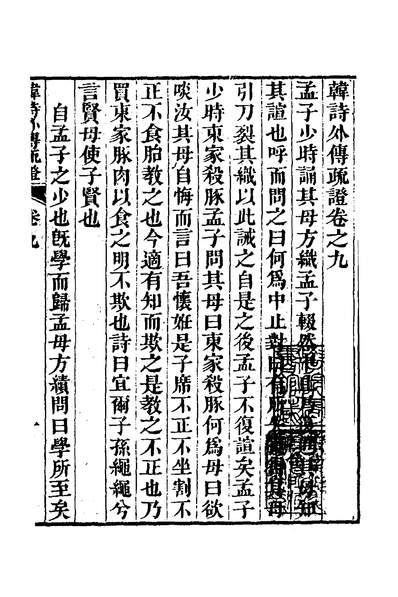 韓詩外傳疏證卷之九
孟子少時誦其母方織孟子輟然母知
其諠也呼而問之曰何爲中止對曰有所其母
引刀裂其織以此誡之自是之後孟子不復諠矣孟子
少時東家殺豚孟子問其母曰東家殺豚何爲母曰欲
啖汝其母自悔而言曰吾懷姙是子席不正不坐割不
正不食胎教之也今適有知而欺之是教之不正也乃
買東家豚肉以食之明不欺也詩曰宜爾子孫繩繩兮
言賢母使子賢也
自孟子之少也旣學而歸孟母方績問曰學所至矣
韓詩外傳疏證 卷九 一